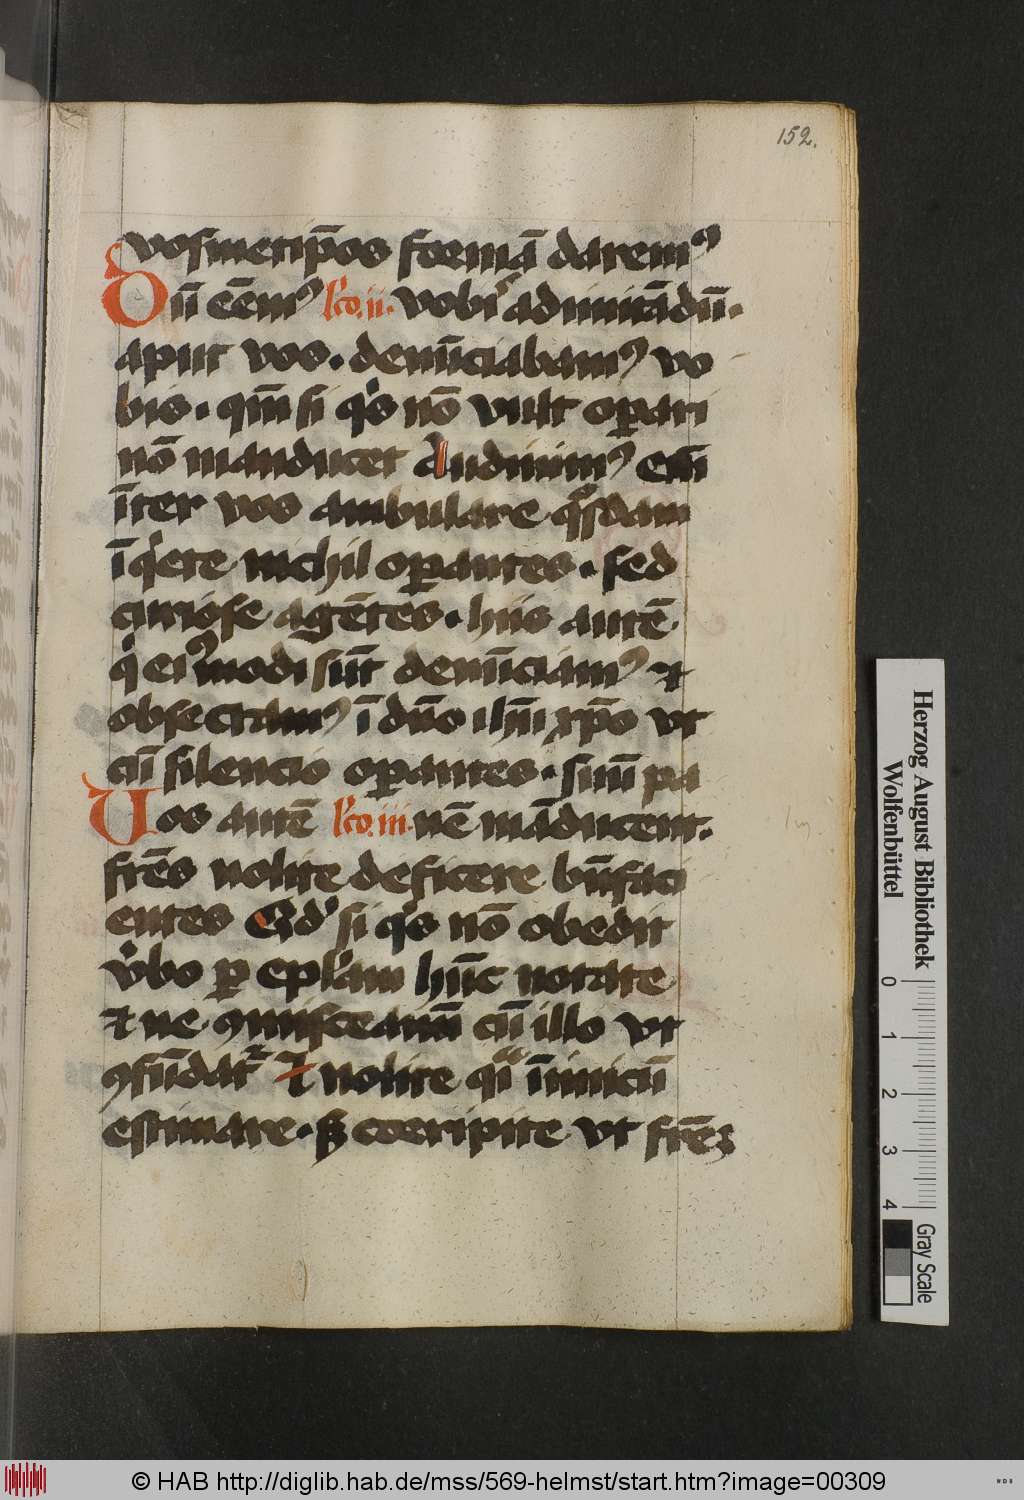 152.
vosmetip̄os formā darem⁹
Dū eēm⁹ lc̄o. ii. vobiˢ ad imitādū.
aput vos. denūciabam⁹ vo
bis. qm̄ si qͥs nō vult oꝑari
nō manducet Audiuim⁹ em̄
īter vos ambulare qͦsdam
īqͥete nichil oꝑantes. sed
curiose agētes. hiis autē
qͥ ei⁹modi sūt denūciam⁹ ⁊
obsecram⁹ ī dn̄o ihū xp̄o vt
cū silencio oꝑantes. suū pa
Uos autē lc̄o. iii. nē māducent.
fr̄es nolite deficere bn̄faci
entes Qd' si qͥs nō obedit
v̓bo ꝑ epl̓am hūc notate
⁊ ne ꝯmisceamī cū illo vt
ꝯfūdat᷑ Et nolite qͣi īimicū
estimare. sꝫ corripite vt fr̄eꝫ
Herzog August Bibliothek
Wolfenbüttel
0 1 2 3 4
Gray Scale
© HAB http://diglib.hab.de/mss/569-helmst/start.htm?image=00309